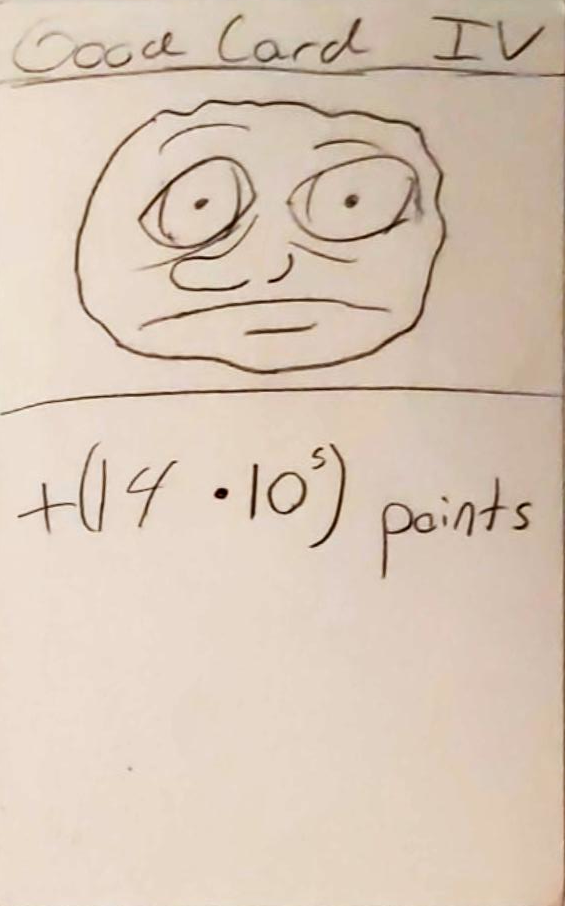 Good Card IV
+(14 · 10⁵) points